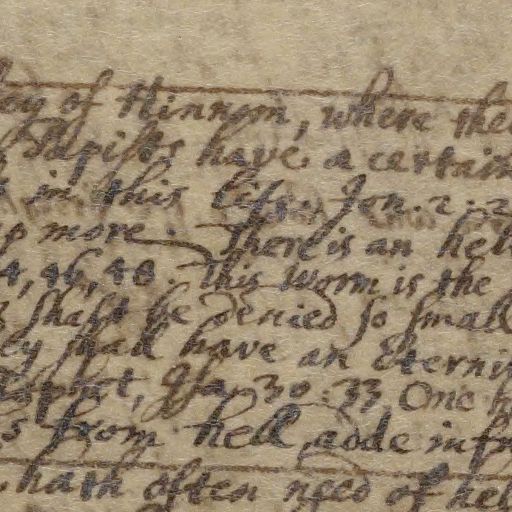 ey of Hinnom, where the
Papists have a certain
in this life. Jon. 2. 2
more. There is an hel
4, 46, 48. This worm is the
shall be denied so small
ey shall have an Eterni
Isa. 30. 33 One h
s from hell, adde inf
hath often need of hel